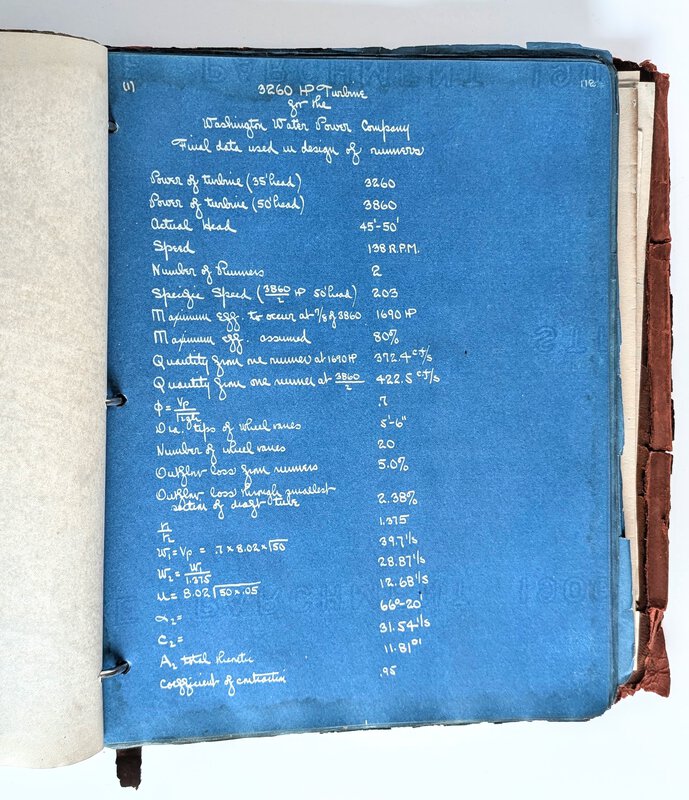 (1)
3260 HP Turbine
for the
Washington Water Power Company
Final data used in design of runners
Power of turbine (35' head) 3260
Power of turbine (50' head) 3860
Actual Head 45'-50'
Speed 138 R.P.M.
Number of Runners 2
Specific Speed (3860/2 HP 50' head) 203
Maximum Eff. to occur at 7/8 of 3860 1690 HP
Maximum eff. assumed 80%
Quantity from one runner at 1690 HP 372.4 cf/s
Quantity from one runner at 3860/2 422.5 cf/s
φ = Vp/√2gh .7
Dia. tips of wheel vanes 5'-6"
Number of wheel vanes 20
Outflow loss from runners 5.0%
Outflow loss through smallest
section of draft tube 2.38%
1.375
W₁ = Vp = .7 × 8.02 × √50 39.7'/s
W₂ = W₁/1.375 28.87'/s
u = 8.02 √50 × .05 12.68'/s
α₂ = 66°-20'
C₂ = 31.54'/s
A₂ total 11.81
Coefficient of contraction .95